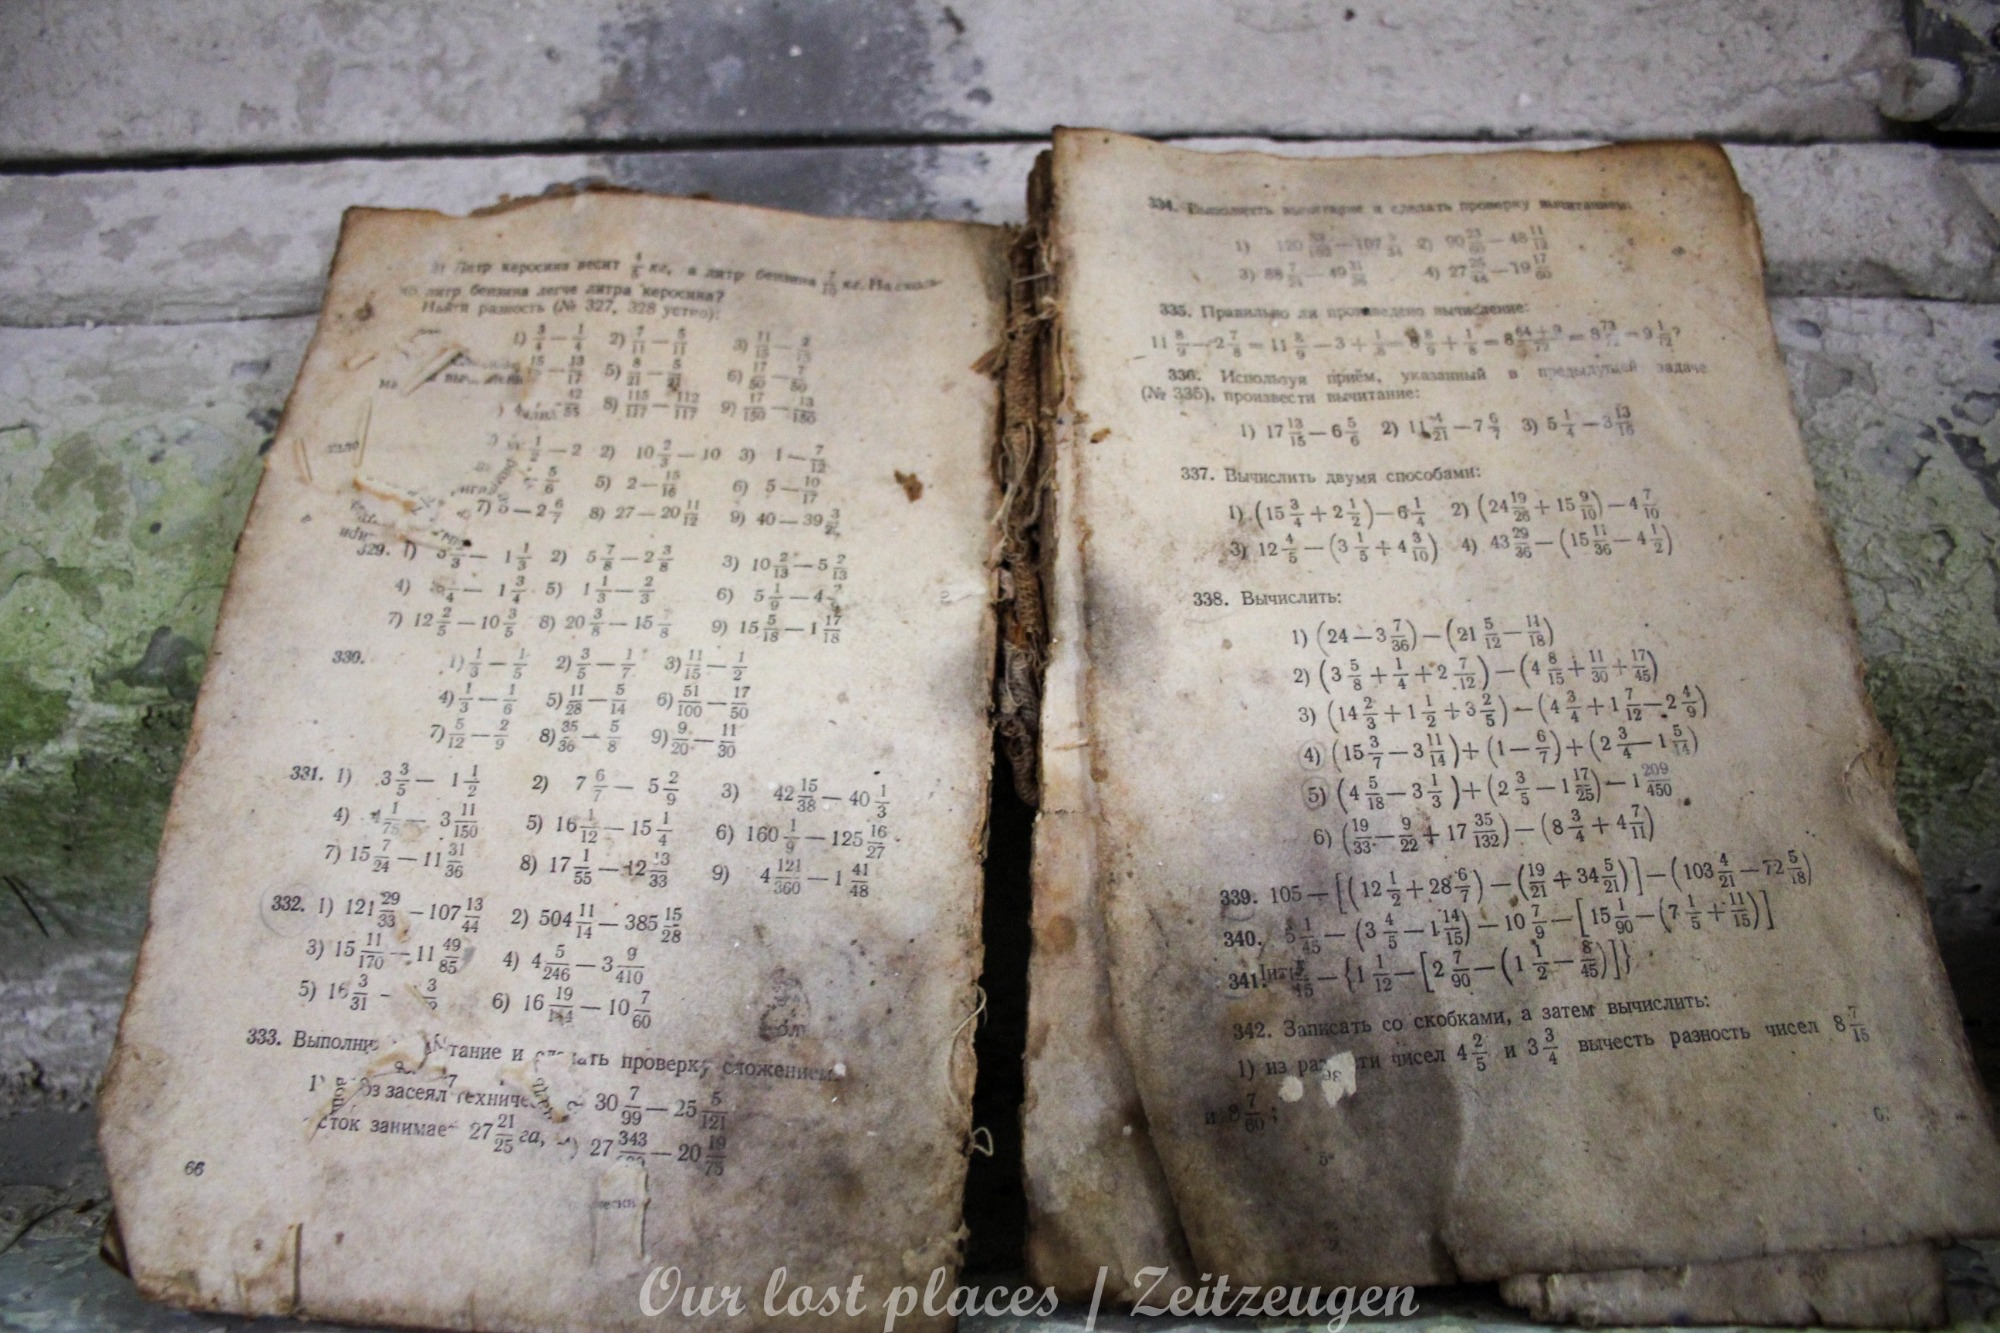 Литр керосина весит 4/5 кг, а литр бензина 7/10 кг. На сколь-
литр бензина легче литра керосина?
Найти разность (№ 327, 328 устно):
1) 3/4 — 1/4 2) 7/11 — 5/11 3) 11/13 — 2/13
13/17 5) 8/21 — 5/21 6) 17/50 — 7/50
42/85 8) 115/117 — 112/117 9) 17/150 — 13/150
1/2 — 2 2) 10 2/3 — 10 3) 1 — 7/12
5/6 5) 2 — 15/16 6) 5 — 10/17
7) 5 — 2 6/7 8) 27 — 20 11/12 9) 40 — 39
329. 1) — 1 1/3 2) 5 7/8 — 2 3/8 3) 10 2/13 — 5 2/13
4) — 1 3/4 5) 1 1/3 — 2/3 6) 5 1/9 — 4
7) 12 2/5 — 10 3/5 8) 20 3/8 — 15 9) 15 5/18 — 1 17/18
330. 1) 1/3 — 1/5 2) 3/5 — 1/7 3) 11/15 — 1/2
4) 1/3 — 1/6 5) 11/28 — 5/14 6) 51/100 — 17/50
7) 5/12 — 2/9 8) 35/36 — 5/8 9) 9/20 — 11/30
331. 1) 3 3/5 — 1 1/2 2) 7 6/7 — 5 2/9 3) 42 15/38 — 40 1/3
4) 4 1/75 — 3 11/150 5) 16 1/12 — 15 1/4 6) 160 1/9 — 125 16/27
7) 15 7/24 — 11 31/36 8) 17 1/55 — 12 13/33 9) 4 121/360 — 1 41/48
332. 1) 121 29/33 — 107 13/44 2) 504 11/14 — 385 15/28
3) 15 11/170 — 11 49/85 4) 4 5/246 — 3 9/410
5) 16 3/31 — 6) 16 19 — 10 7/60
333. и проверку сложением:
засеял 30 7/99 — 25 5/121
занимает 27 21/25 га, 27 343 — 20 19/75
66
334. Выполнить вычитание и сделать проверку вычитанием:
1) 120 — 107 2) 90 — 48 11/12
3) 88 7/24 — 49 31/36 4) 27 — 19 17/60
335. Правильно ли произведено вычисление:
11 8/9 — 2 7/8 = 11 8/9 — 3 + 1/8 = 8 8/9 + 1/8 = 8 64 + 9/72 = 8 73/72 = 9 1/72?
336. Используя приём, указанный в предыдущей задаче
(№ 335), произвести вычитание:
1) 17 13/15 — 6 5/6 2) 11 4/21 — 7 6/7 3) 5 1/4 — 3 13/16
337. Вычислить двумя способами:
1) (15 3/4 + 2 1/2) — 6 1/4 2) (24 19/26 + 15 9/10) — 4 7/10
3) 12 4/5 — (3 1/5 + 4 3/10) 4) 43 29/36 — (15 11/36 — 4 1/2)
338. Вычислить:
1) (24 — 3 7/36) — (21 5/12 — 11/18)
2) (3 5/8 + 1/4 + 2 7/12) — (4 8/15 + 11/30 + 17/45)
3) (14 2/3 + 1 1/2 + 3 2/5) — (4 3/4 + 1 7/12 — 2 4/9)
4) (15 3/7 — 3 11/14) + (1 — 6/7) + (2 3/4 — 1 5/14)
5) (4 5/18 — 3 1/3) + (2 3/5 — 1 17/25) — 1 209/450
6) (19/33 — 9/22 + 17 35/132) — (8 3/4 + 4 7/11)
339. 105 — [(12 1/2 + 28 6/7) — (19/21 + 34 5/21)] — (103 4/21 — 72 5/18)
340. 5 1/45 — (3 4/5 — 1 14/15) — 10 7/9 — [15 1/90 — (7 1/5 + 11/15)]
341. — {1 1/12 — [2 7/90 — (1 1/2 — 8/45)]}
342. Записать со скобками, а затем вычислить:
1) из чисел 4 2/5 и 3 3/4 вычесть разность чисел 8 7/15
и 8 7/60;
5*
Our lost places / Zeitzeugen